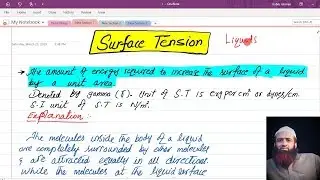 My Notebook
Surface Tension
Liquids
→ The amount of energy required to increase the surface of a liquid
by a unit area
Denoted by gamma (γ). Unit of S.T is erg per cm² or dynes/cm
S.I unit of S.T is N/m².
Explanation:
The molecules inside the body of a liquid
are completely surrounded by other molecules
& are attracted equally in all directions
While the molecules at the liquid surface